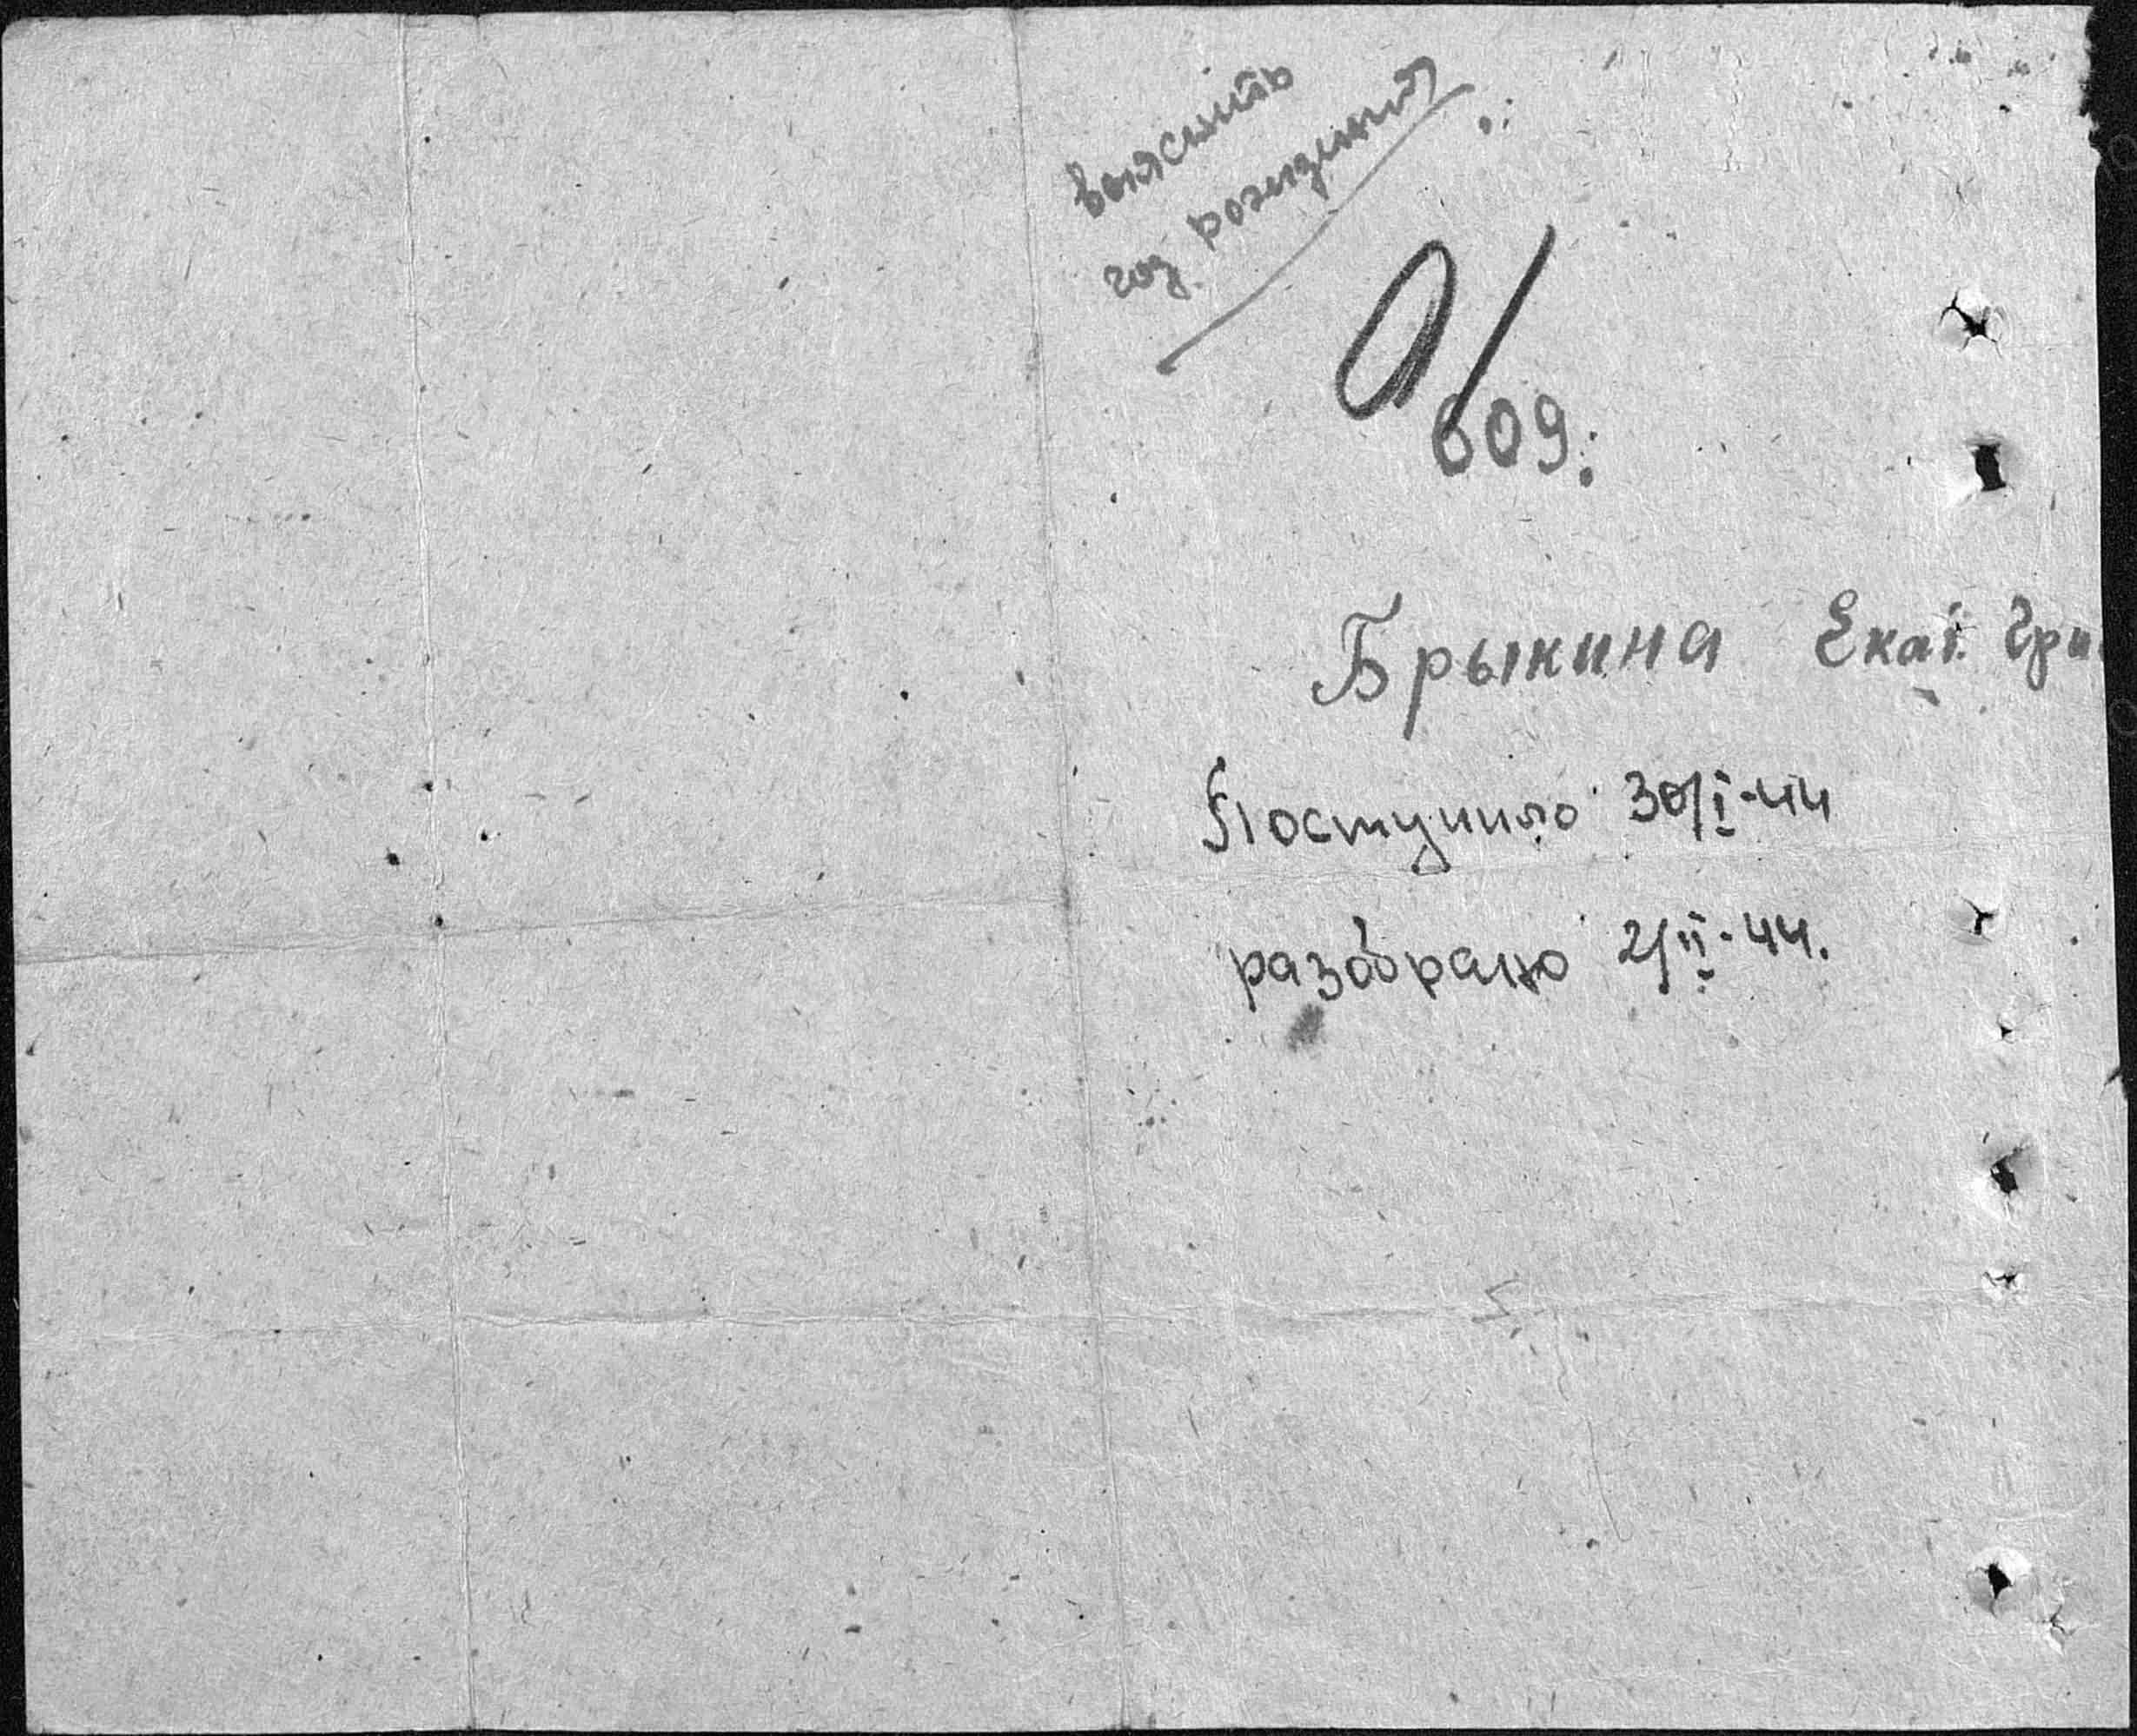 выяснить
год рождения
609.
Брыкина Екат. Гри
Поступило 30/I-44
разобрано 2/II-44.